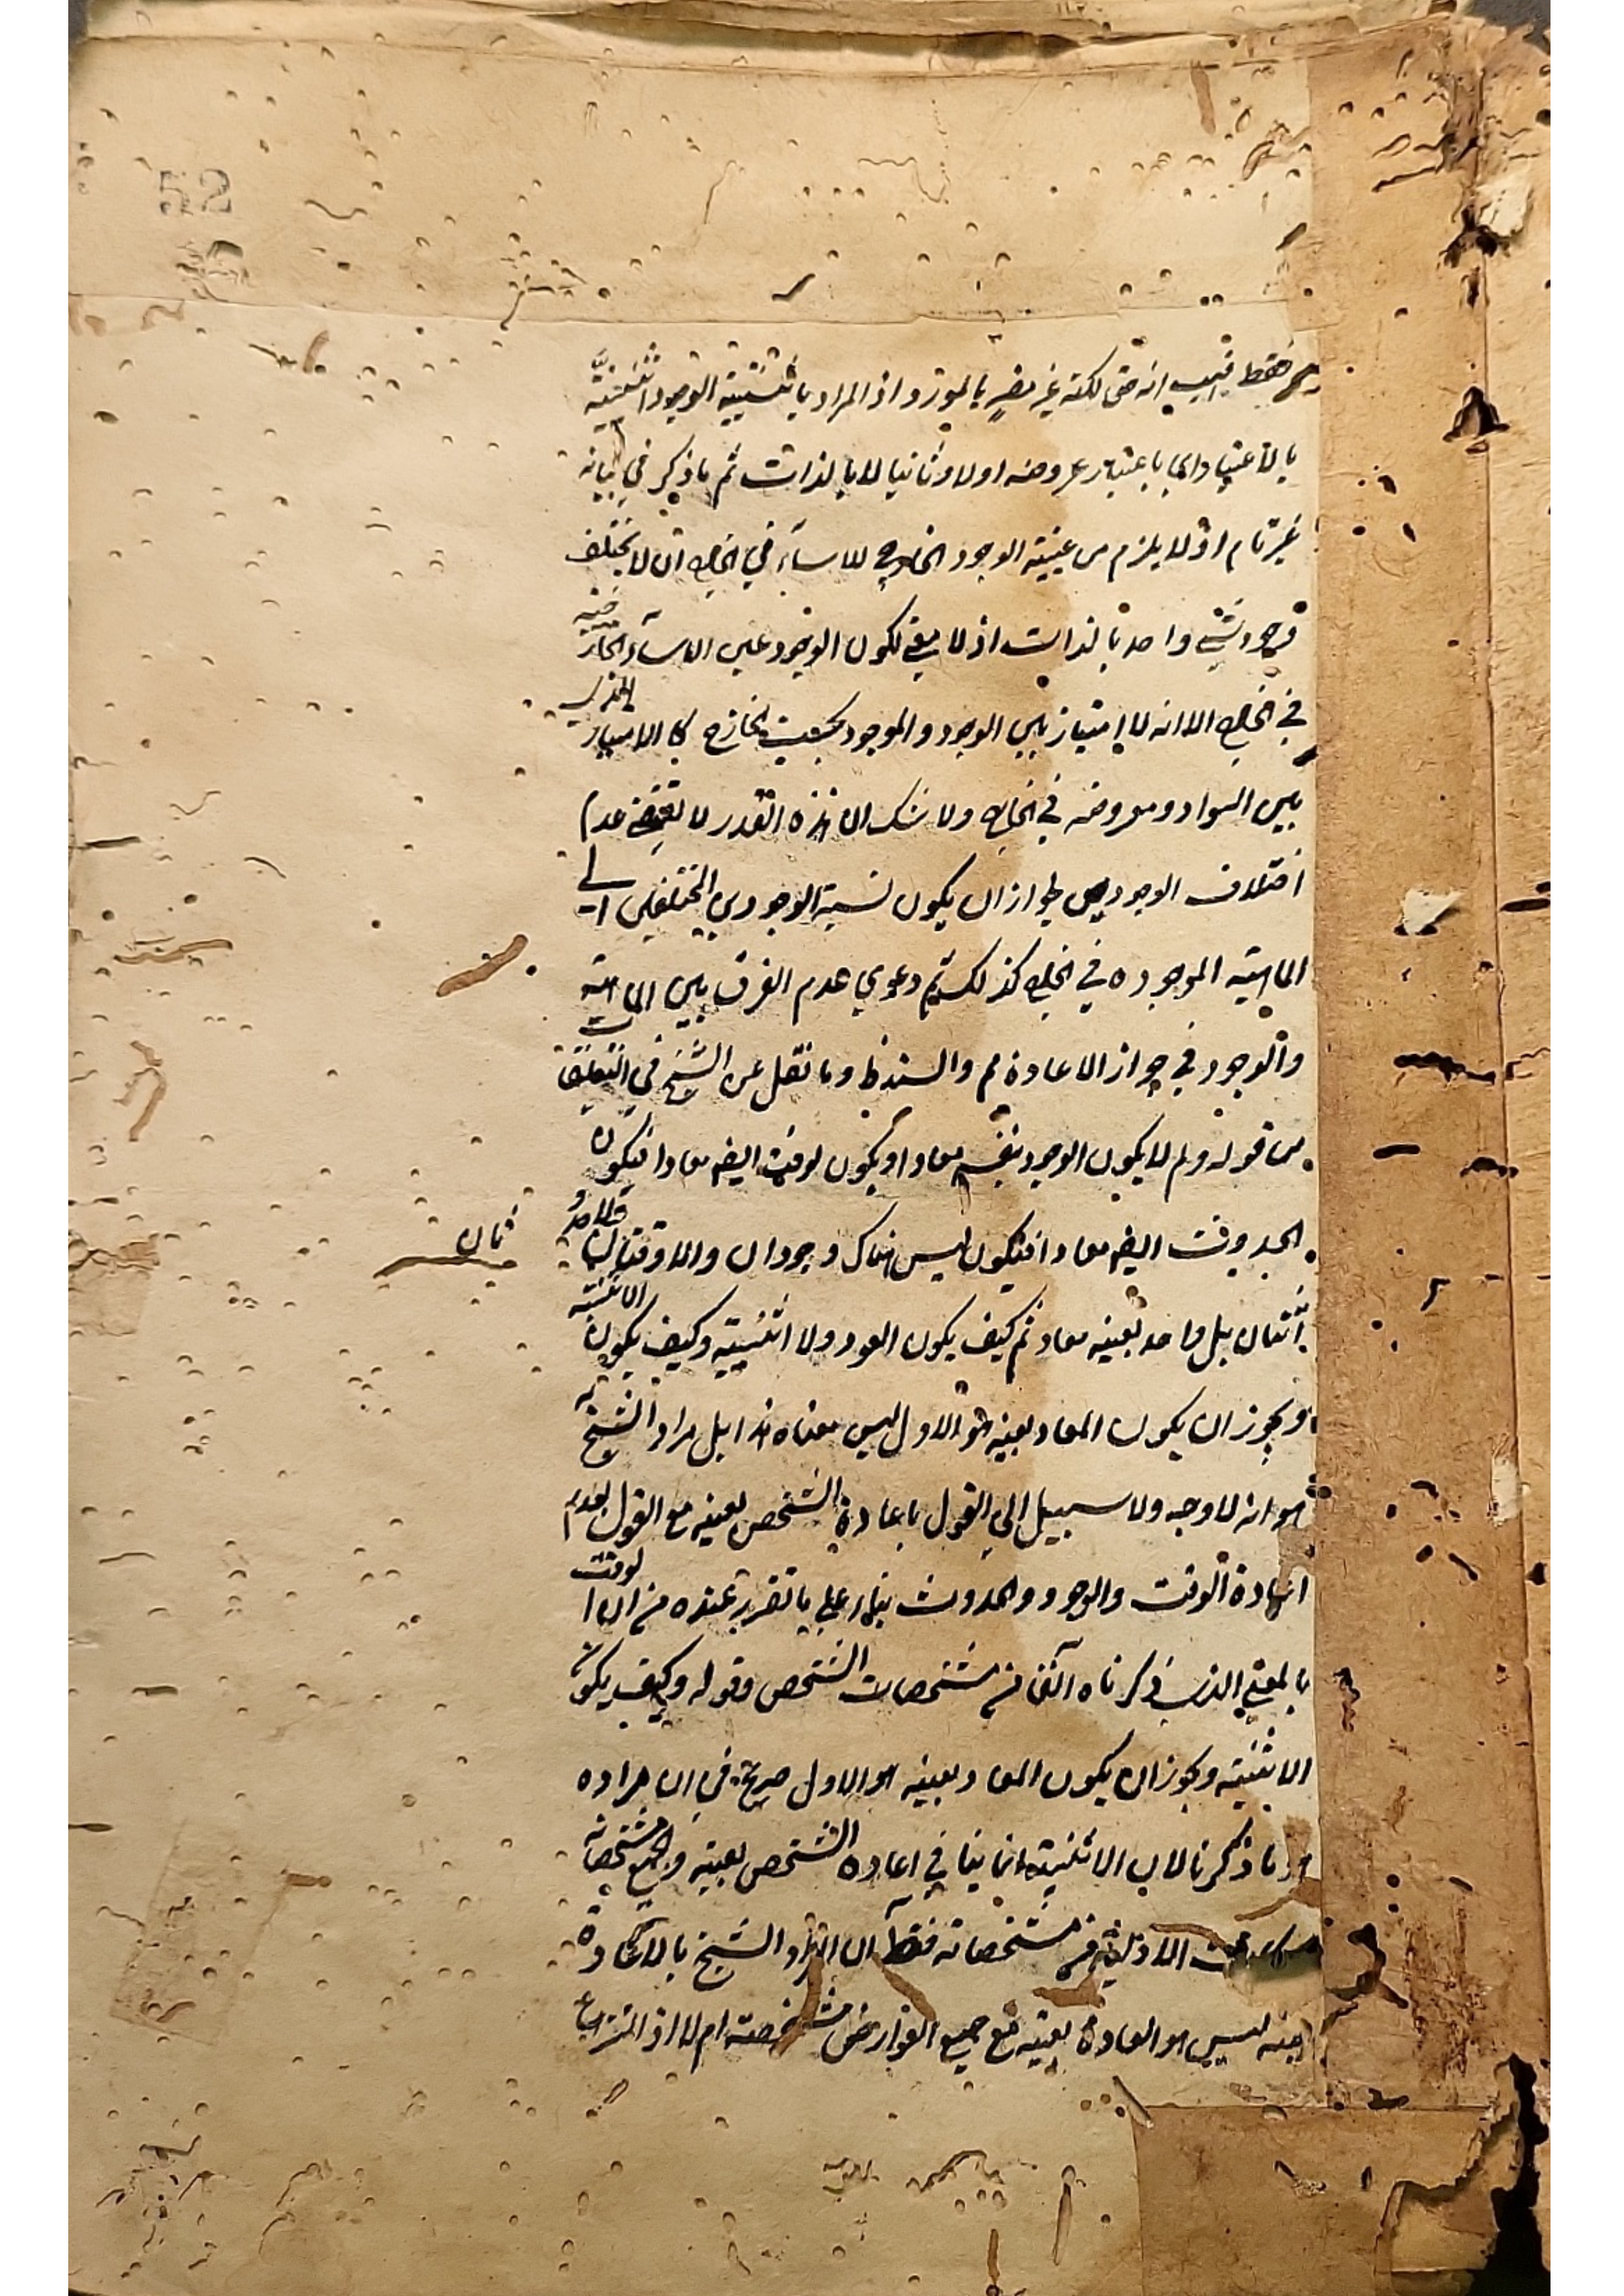 52
فقط فيه انه حق لكنه غير مضر بالمورد اذ المراد باثنينية الوجود اثنينيته
بالاعتبار اي باعتبار عروضه اولا وثانيا لا بالذات ثم ما ذكر في بيانه
غير تام اذ لا يلزم من عينية الوجود الخارجي للاشياء في الخارج ان لا يختلف
وجود شيء واحد بالذات اذ لا معنى لكون الوجود عين الاشياء الخارجية
في الخارج الا انه لا امتياز بين الوجود والموجود بحسب الخارج كالامتياز الذي
بين السواد ومعروضه في الخارج ولا شك ان هذه القدر لا تقتضي عدم
اختلاف الوجودين لجواز ان يكون نسبة الوجودين المختلفين الى
الماهية الموجوده في الخارج كذلك ثم دعوي عدم الفرق بين الماهية
والوجود في جواز الاعادة مم والسند ظ وما نقل عن الشيخ في التعليقات
من قوله ولم لا يكون الوجود نفسه معادا ويكون الوقت ايضه معادا فيكون
الحدوث ايضه معادا فيكون ليس هناك وجودان ولا وقتان ولا حدوثان
اثنان بل واحد بعينه معاد ثم كيف يكون العود ولا اثنينية وكيف يكون الاثنينية
ويجوز ان يكون المعاد بعينه هو الاول ليس معناه هذا بل مراد الشيخ به
هو انه لا وجه ولا سبيل الي القول باعادة الشخص بعينه مع القول بعدم
اعادة الوقت والوجود والحدوث بناء علي ما تقرر عنده من ان الوقت
بالمعني الذي ذكرناه آنفا من مشخصات الشخص وقوله وكيف يكون
الاثنينية ويجوز ان يكون المعاد بعينه هو الاول صريح في ان مراده
ما ذكرنا لان الاثنينية انما ينافي اعاده الشخص بعينه وبجميع مشخصاته
مشخصاته فقط الا ان اراد الشيخ بالاعادة
بعينه ليس هو العادة بعينه مع جميع العوارض مشخصته ام لا اذ النزاع